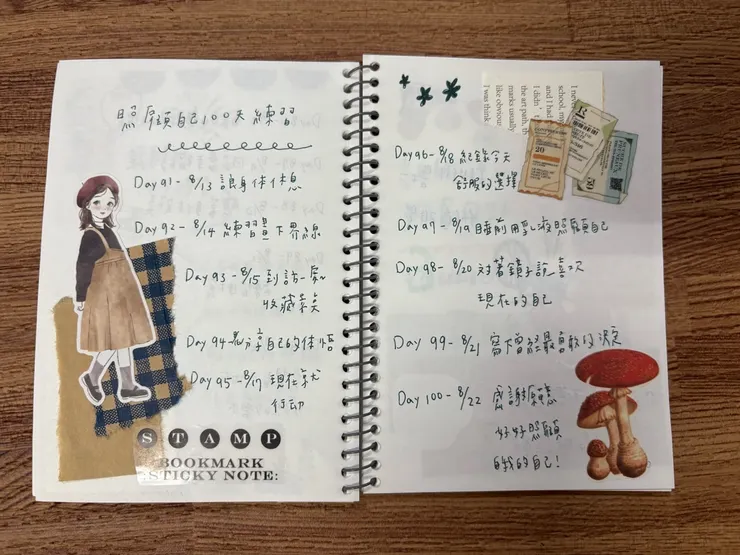 照顧自己100天練習
Day 91 - 8/13 讓身体休息
Day 92 - 8/14 練習畫下界線
Day 93 - 8/15 到訪一處
收藏美
Day 94 - 分享自己的体悟
Day 95 - 8/17 現在就
行动
STAMP
BOOKMARK
STICKY NOTE:
Day 96 - 8/18 紀錄今天
舒服的選擇
Day 97 - 8/19 睡前用乳液照顧自己
Day 98 - 8/20 对著鏡子說喜欢
現在的自己
Day 99 - 8/21 寫下曾經最勇敢的決定
Day 100 - 8/22 感謝願意
好好照顧
自我的自己!
I never
school, my
and I had
I didn't
the art path, th
marks usually
like obvious
I was think
20